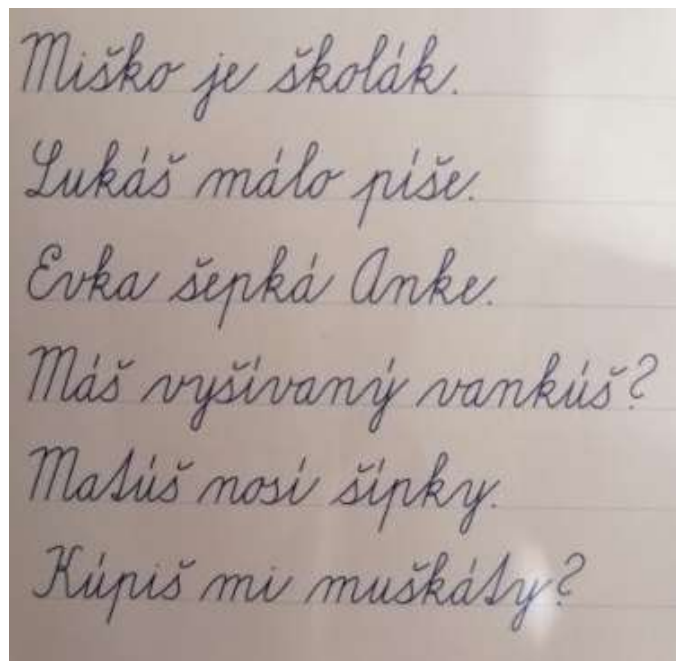 Miško je školák.
Lukáš málo píše.
Evka šepká Anke.
Máš vyšívaný vankúš?
Matúš nosí šípky.
Kúpiš mi muškáty?